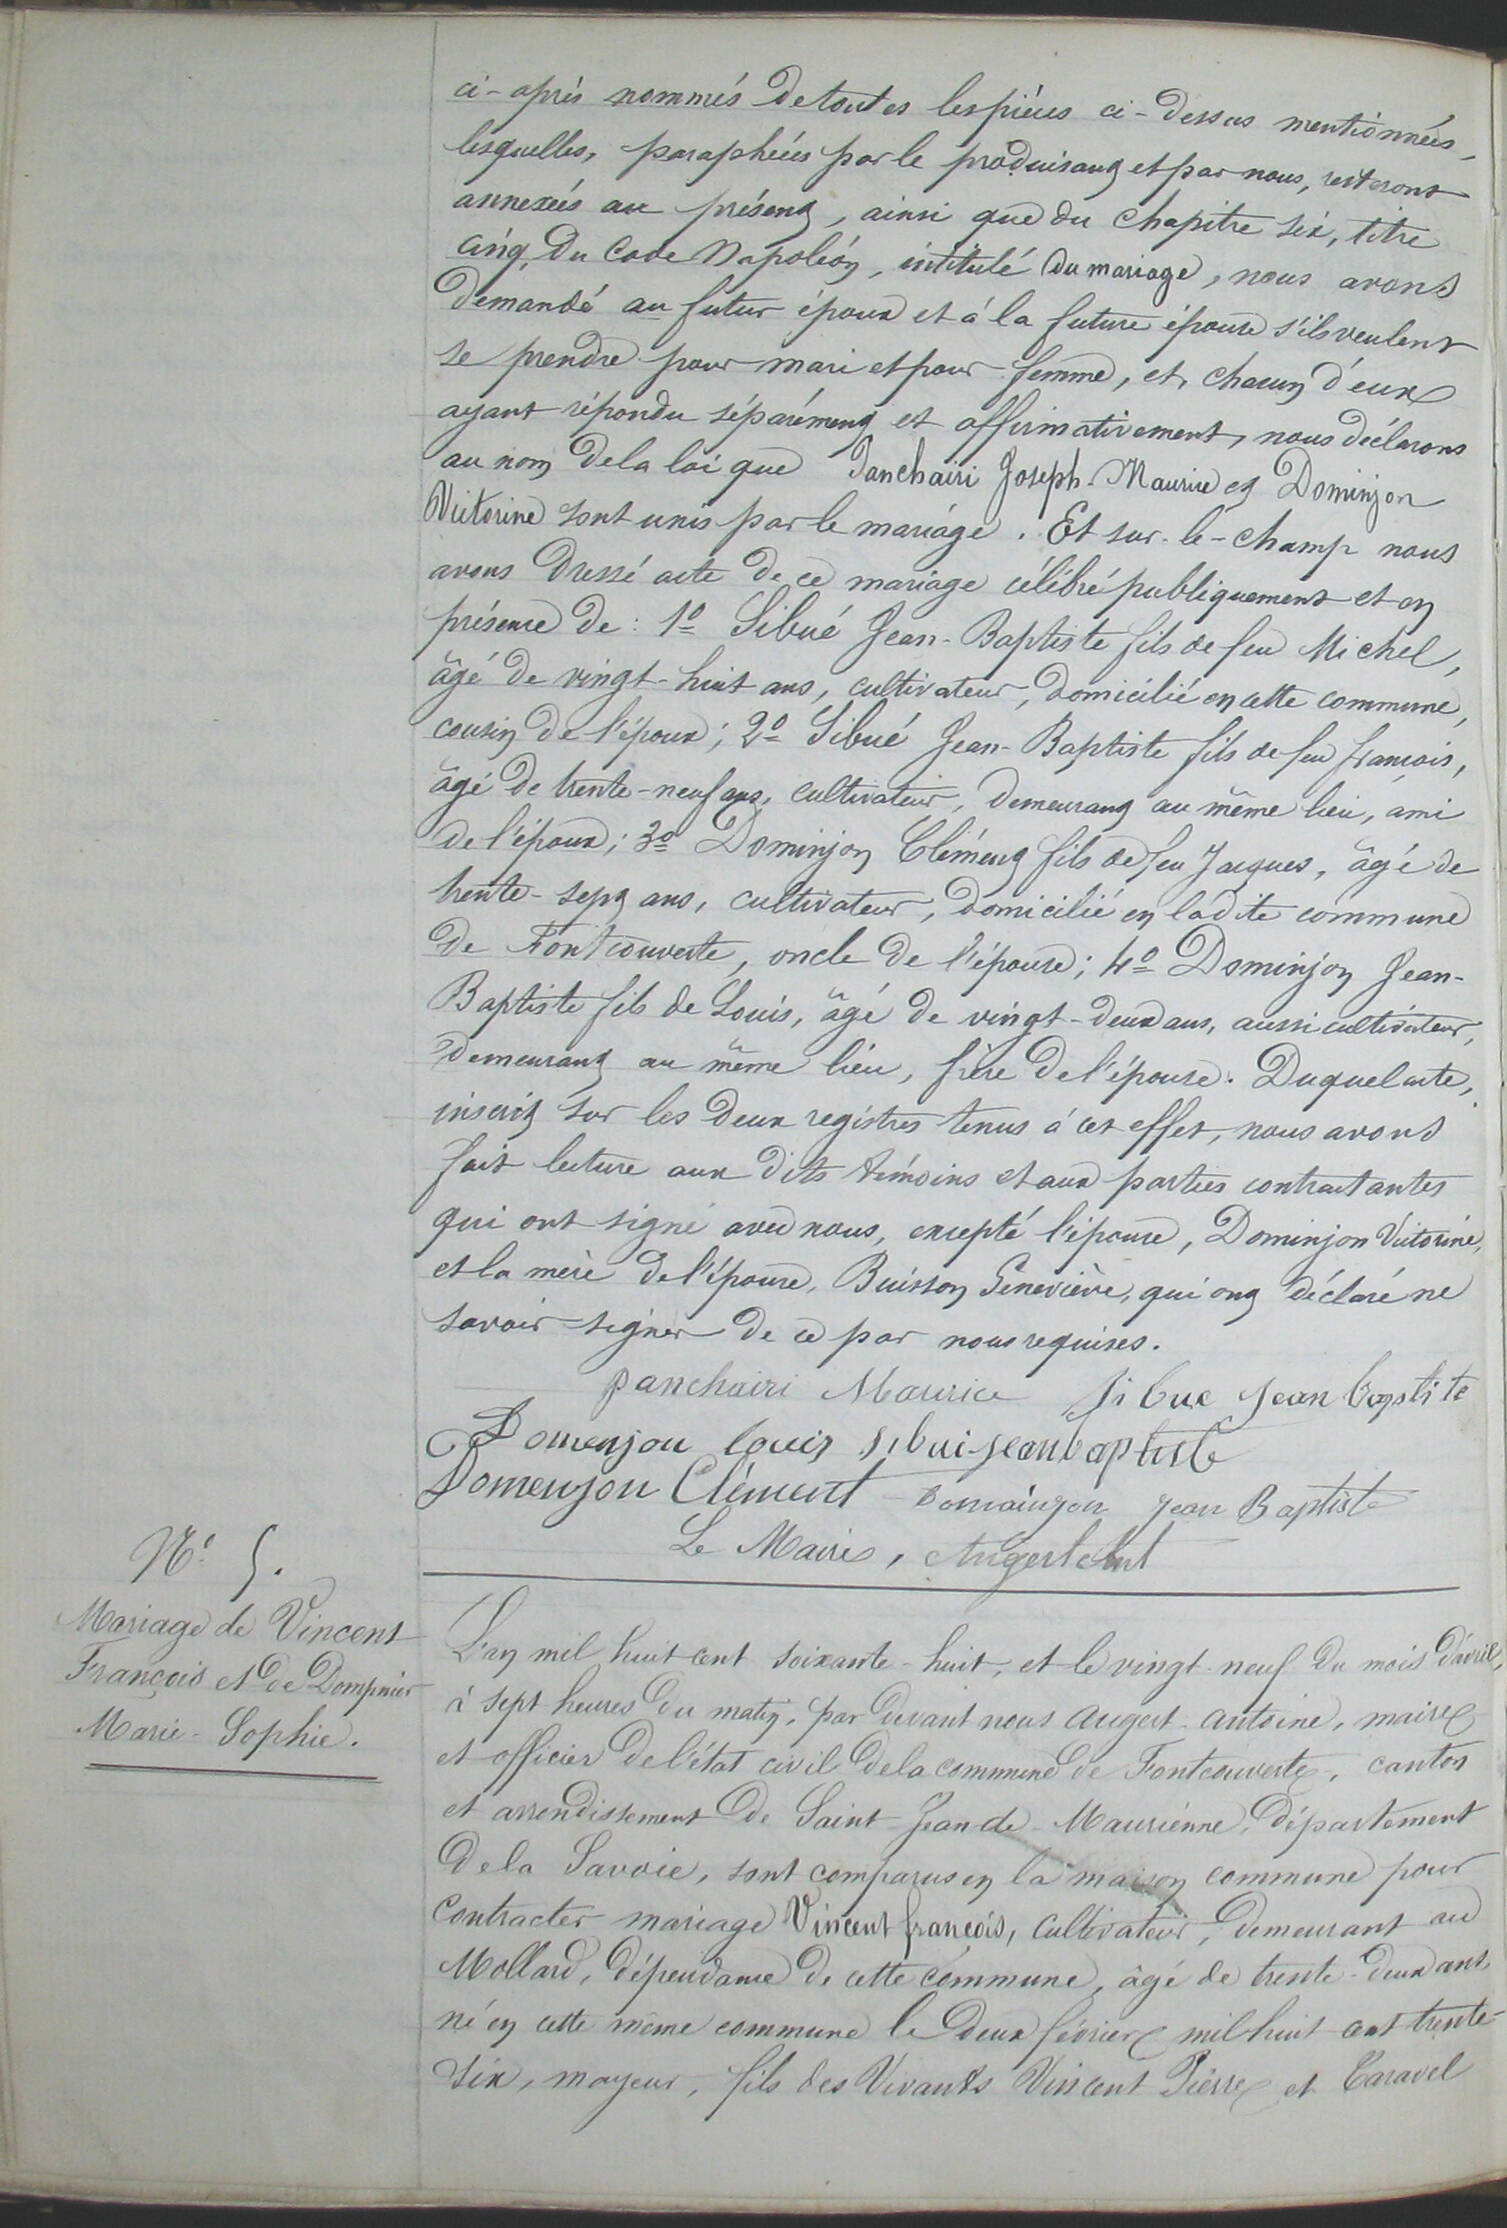 ci-après nommés de toutes les pièces ci-dessus mentionnées,
lesquelles, paraphées par le produisant et par nous, resteront
annexées au présent, ainsi que du chapitre six, titre
cinq, du Code Napoléon, intitulé du mariage, nous avons
demandé au futur époux et à la future épouse s'ils veulent
se prendre pour mari et pour femme, et, chacun d'eux
ayant répondu séparément et affirmativement, nous déclarons
au nom de la loi que Panchairi Joseph-Maurice et Dominjon
Victorine sont unis par le mariage. Et sur-le-champ nous
avons dressé acte de ce mariage célébré publiquement et en
présence de: 1º Sibué Jean-Baptiste fils de feu Michel,
âgé de vingt-huit ans, cultivateur, domicilié en cette commune,
cousin de l'époux; 2º Sibué Jean-Baptiste fils de feu françois,
âgé de trente-neuf ans, cultivateur, demeurant au même lieu, ami
de l'époux; 3º Dominjon Clément fils de feu Jacques, âgé de
trente-sept ans, cultivateur, domicilié en ladite commune
de Fontcouverte, oncle de l'épouse; 4º Dominjon Jean-
Baptiste fils de Louis, âgé de vingt-deux ans, aussi cultivateur,
demeurant au même lieu, frère de l'épouse. Duquel acte,
inscrit sur les deux registres tenus à cet effet, nous avons
fait lecture aux dits témoins et aux parties contractantes
qui ont signé avec nous, excepté l'épouse, Dominjon Victorine,
et la mère de l'épouse, Buisson Geneviève, qui ont déclaré ne
savoir signer de ce par nous requises.
panchairi Maurice Sibue jean baptiste
Domenjon louis sibui-jean baptiste
Domenjon Clément Domainjon jean Baptiste
Le Maire, Augert Ant
Nº 5.
Mariage de Vincent
François et de Dompnier
Marie-Sophie.
L'an mil huit cent soixante-huit, et le vingt-neuf du mois d'avril,
à sept heures du matin, par devant nous Augert Antoine, maire
et officier de l'état civil de la commune de Fontcouverte, canton
et arrondissement de Saint-Jean-de-Maurienne, département
de la Savoie, sont comparus en la maison commune pour
contracter mariage Vincent françois, cultivateur, demeurant au
Mollard, dépendance de cette commune, âgé de trente-deux ans,
né en cette même commune le deux février mil huit cent trente-
six, majeur, fils des vivants Vincent Pierre et Caravel